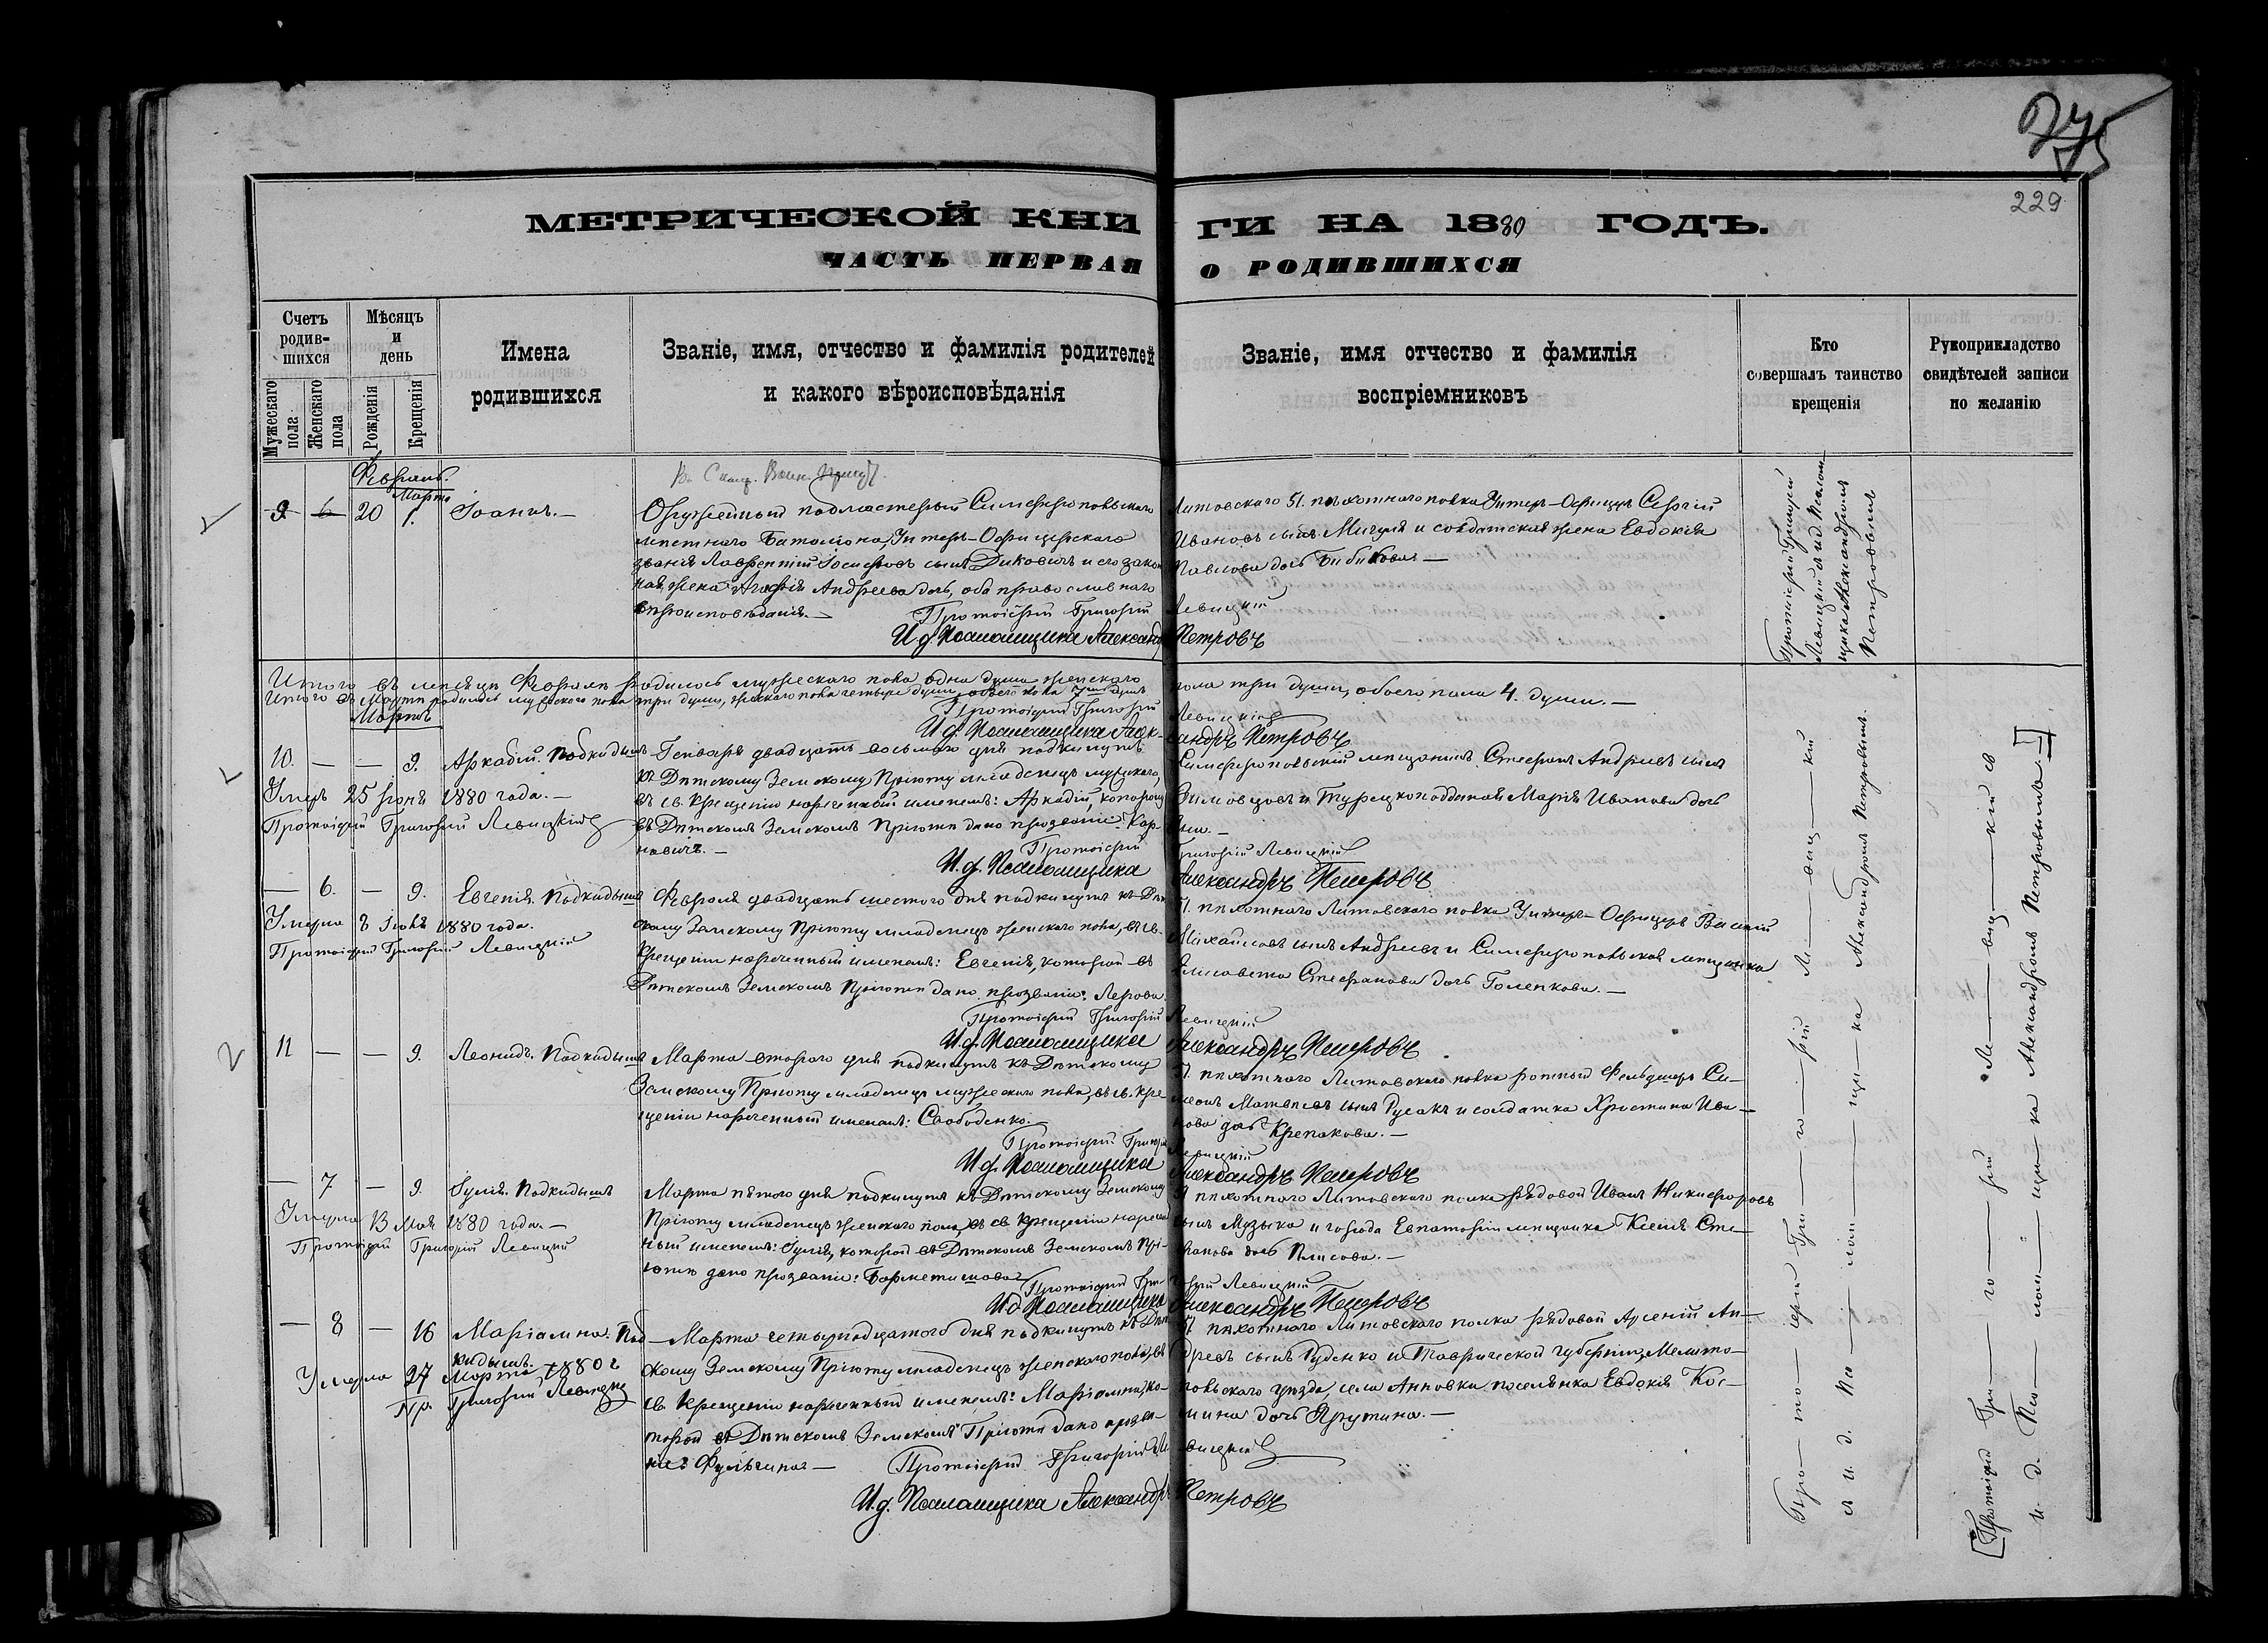 275
229
МЕТРИЧЕСКОЙ КНИГИ НА 1880 ГОДЪ.
ЧАСТЬ ПЕРВАЯ О РОДИВШИХСЯ
Счетъ родившихся
Мужескаго пола
Женскаго пола
Мѣсяцъ и день
Рожденія
Крещенія
Имена родившихся
Званіе, имя, отчество и фамилія родителей и какого вѣроисповѣданія
Званіе, имя отчество и фамилія воспріемниковъ
Кто совершалъ таинство крещенія
Рукоприкладство свидѣтелей записи по желанію
Февраль.
Марта
9. 6 20 1. Іоаннъ.—
Оружейный подмастерый Симферопольскаго
мѣстнаго Баталіона, Унтеръ-Офицерскаго
званія Лаврентій Іосифовъ сынъ Диковичъ и его закон
ная жена Агафія Андреева дочь, оба православнаго
вѣроисповѣданія.—
Протоіерей Григорій Левицкій
И.д. Псаломщика Александръ Петровъ
Литовскаго 51. пѣхотнаго полка Унтеръ-Офицеръ Сергій
Ивановъ сынъ и солдатская жена Евдокія
Павлова дочь Бибикова.—
Протоіерей Григорій
Левицкій съ и.д. Псалом-
щика Александромъ
Петровымъ
Итого въ мѣсяцѣ Февралѣ родилось мужескаго пола одна душа, женскаго пола три души, обоего пола 4. души.—
Итого въ Мартѣ родилось мужескаго пола три души, женскаго пола четыре души, обоего пола 7 душъ
Протоіерей Григорій Левицкій
И.д. Псаломщика Александръ Петровъ
Мартъ
10. — — 9. Аркадій. Подкидышъ
Умеръ 25 1880 года.—
Протоіерей Григорій Левицкій
Генваря двадцать восьмаго дня подкинутъ
къ Дѣтскому Земскому Пріюту младенецъ мужескаго,
въ св. Крещеніи нареченный именемъ: Аркадій, которому
въ Дѣтскомъ Земскомъ Пріютѣ дано прозваніе: Кар-
новичъ.—
Протоіерей Григорій Левицкій
И.д. Псаломщика Александръ Петровъ
Симферопольскій мѣщанинъ Стефанъ Андреевъ сынъ
Зимовцовъ и Турецкоподданая Марія Иванова дочь
— 6. — 9. Евгенія. Подкидышъ
Умерла 2 Іюня 1880 года.
Протоіерей Григорій Левицкій
Февраля двадцать шестого дня подкинутъ къ Дѣт
скому Земскому Пріюту младенецъ женскаго пола, въ св.
Крещеніи нареченный именемъ: Евгенія, которой въ
Дѣтскомъ Земскомъ Пріютѣ дано прозваніе: Лерова.
Протоіерей Григорій Левицкій
И.д. Псаломщика Александръ Петровъ
51. пѣхотнаго Литовскаго полка Унтеръ-Офицеръ Василій
Михайловъ сынъ Андреевъ и Симферопольская мѣщанка
Елисавета Стефанова дочьГоленкова.—
11 — — 9. Леонидъ. Подкидышъ
Марта второго дня подкинутъ къ Дѣтскому
Земскому Пріюту младенецъ мужескаго пола, въ св. Кре
щеніи нареченный именемъ: Свободенко.—
Протоіерей Григорій Левицкій
И.д. Псаломщика Александръ Петровъ
51. пѣхотнаго Литовскаго полка ротный Фельдшеръ Си-
меонъ Матвѣевъ сынъ Русакъ и солдатка Христина Ива-
нова дочь Крепакова.—
— 7 — 9. Іулія. Подкидышъ
Умерла 13 Мая 1880 года.—
Протоіерей Григорій Левицкій
Марта пятого дня подкинутъ къ Дѣтскому Земскому
Пріюту младенецъ женскаго пола, въ св. Крещеніи наречен
ный именемъ: Іулія, которой въ Дѣтскомъ Земскомъ Прі-
ютѣ дано прозваніе:
Протоіерей Григорій Левицкій
И.д. Псаломщика Александръ Петровъ
51 пѣхотнаго Литовскаго полка рядовой Иванъ Никифоровъ
сынъ Музыка и города Евпаторіи мѣщанка Ксенія Сте-
фанова дочь Плисова.—
— 8 — 16 Маріамна. Под-
кидышъ.
Умерла 27 Марта, 1880 г
Пр. Григорій Левицкій
Марта четырнадцатого дня подкинутъ къ Дѣт
скому Земскому Пріюту младенецъ женскаго пола, въ
св. Крещеніи нареченный именемъ: Маріамна, ко-
торой въ Дѣтскомъ Земскомъ Пріютѣ дано прозва-
ніе:
Протоіерей Григорій Левицкій
И.д. Псаломщика Александръ Петровъ
51. пѣхотнаго Литовскаго полка рядовой Арсеній Ан-
дреевъ сынъ Руденко и Таврической губерніи, Мелито-
польскаго уѣзда, села Анновки поселянка Евдокія Кос-
мина дочь Ярутина.—
Протоіерей Григорій Левицкій
съ и.д. Псаломщика Александромъ Петровымъ.
Протоіерей Григорій Левицкій съ
и.д. Псаломщика Александромъ Петровымъ.—